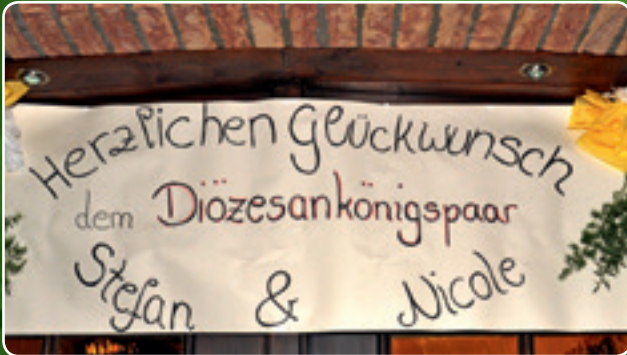 Herzlichen Glückwunsch
dem Diözesankönigspaar
Stefan & Nicole